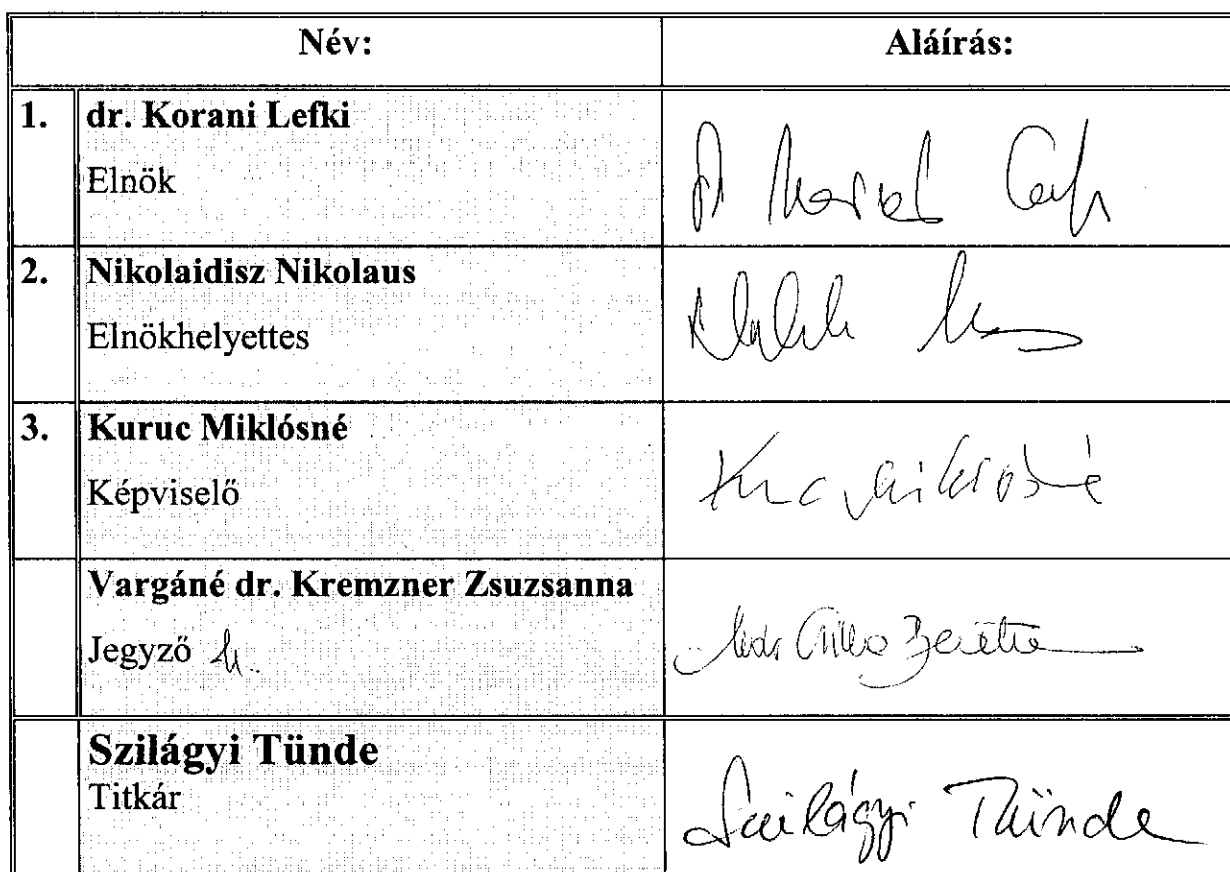 Név: Aláírás:
1. dr. Korani Lefki
Elnök
2. Nikolaidisz Nikolaus
Elnökhelyettes
3. Kuruc Miklósné
Képviselő
Vargáné dr. Kremzner Zsuzsanna
Jegyző
Szilágyi Tünde
Titkár
Szilágyi Tünde